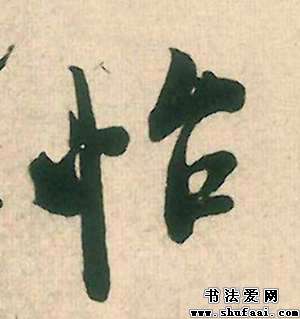 怡
书法爱网
www.shufaai.com